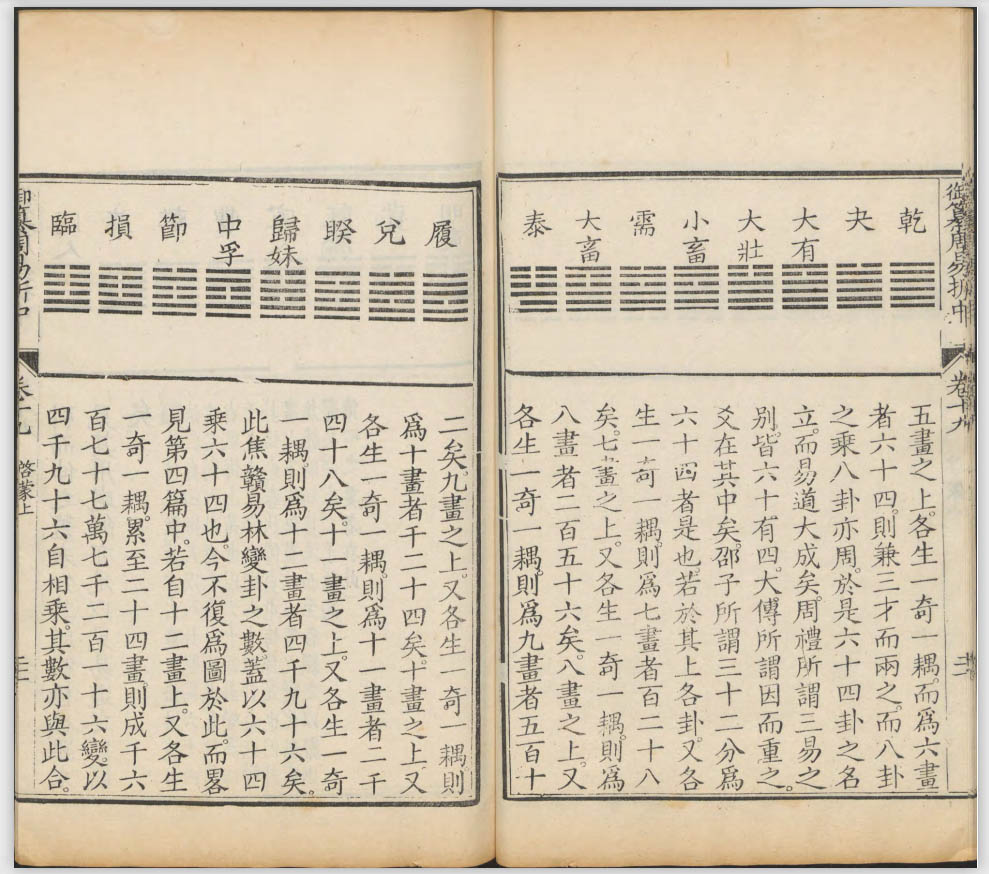 御纂周易折中
卷十九
乾
夬
大有
大壯
小畜
需
大畜
泰
五畫之上。各生一奇一耦。而爲六畫
者六十四。則兼三才而兩之。而八卦
之乘八卦亦周。於是六十四卦之名
立。而易道大成矣。周禮所謂三易之
別。皆六十有四。大傳所謂因而重之。
爻在其中矣。邵子所謂三十二分爲
六十四者是也。若於其上各卦。又各
生一奇一耦。則爲七畫者百二十八
矣。七畫之上。又各生一奇一耦。則爲
八畫者二百五十六矣。八畫之上。又
各生一奇一耦。則爲九畫者五百十
履
兌
睽
歸妹
中孚
節
損
臨
二矣。九畫之上。又各生一奇一耦則
爲十畫者千二十四矣。十畫之上又
各生一奇一耦。則爲十一畫者二千
四十八矣。十一畫之上。又各生一奇
一耦。則爲十二畫者四千九十六矣。
此焦贛易林變卦之數。蓋以六十四
乘六十四也。今不復爲圖於此。而畧
見第四篇中。若自十二畫上。又各生
一奇一耦。累至二十四畫則成千六
百七十七萬七千二百一十六變。以
四千九十六自相乘。其數亦與此合。
御纂周易折中
卷十九
啓蒙上